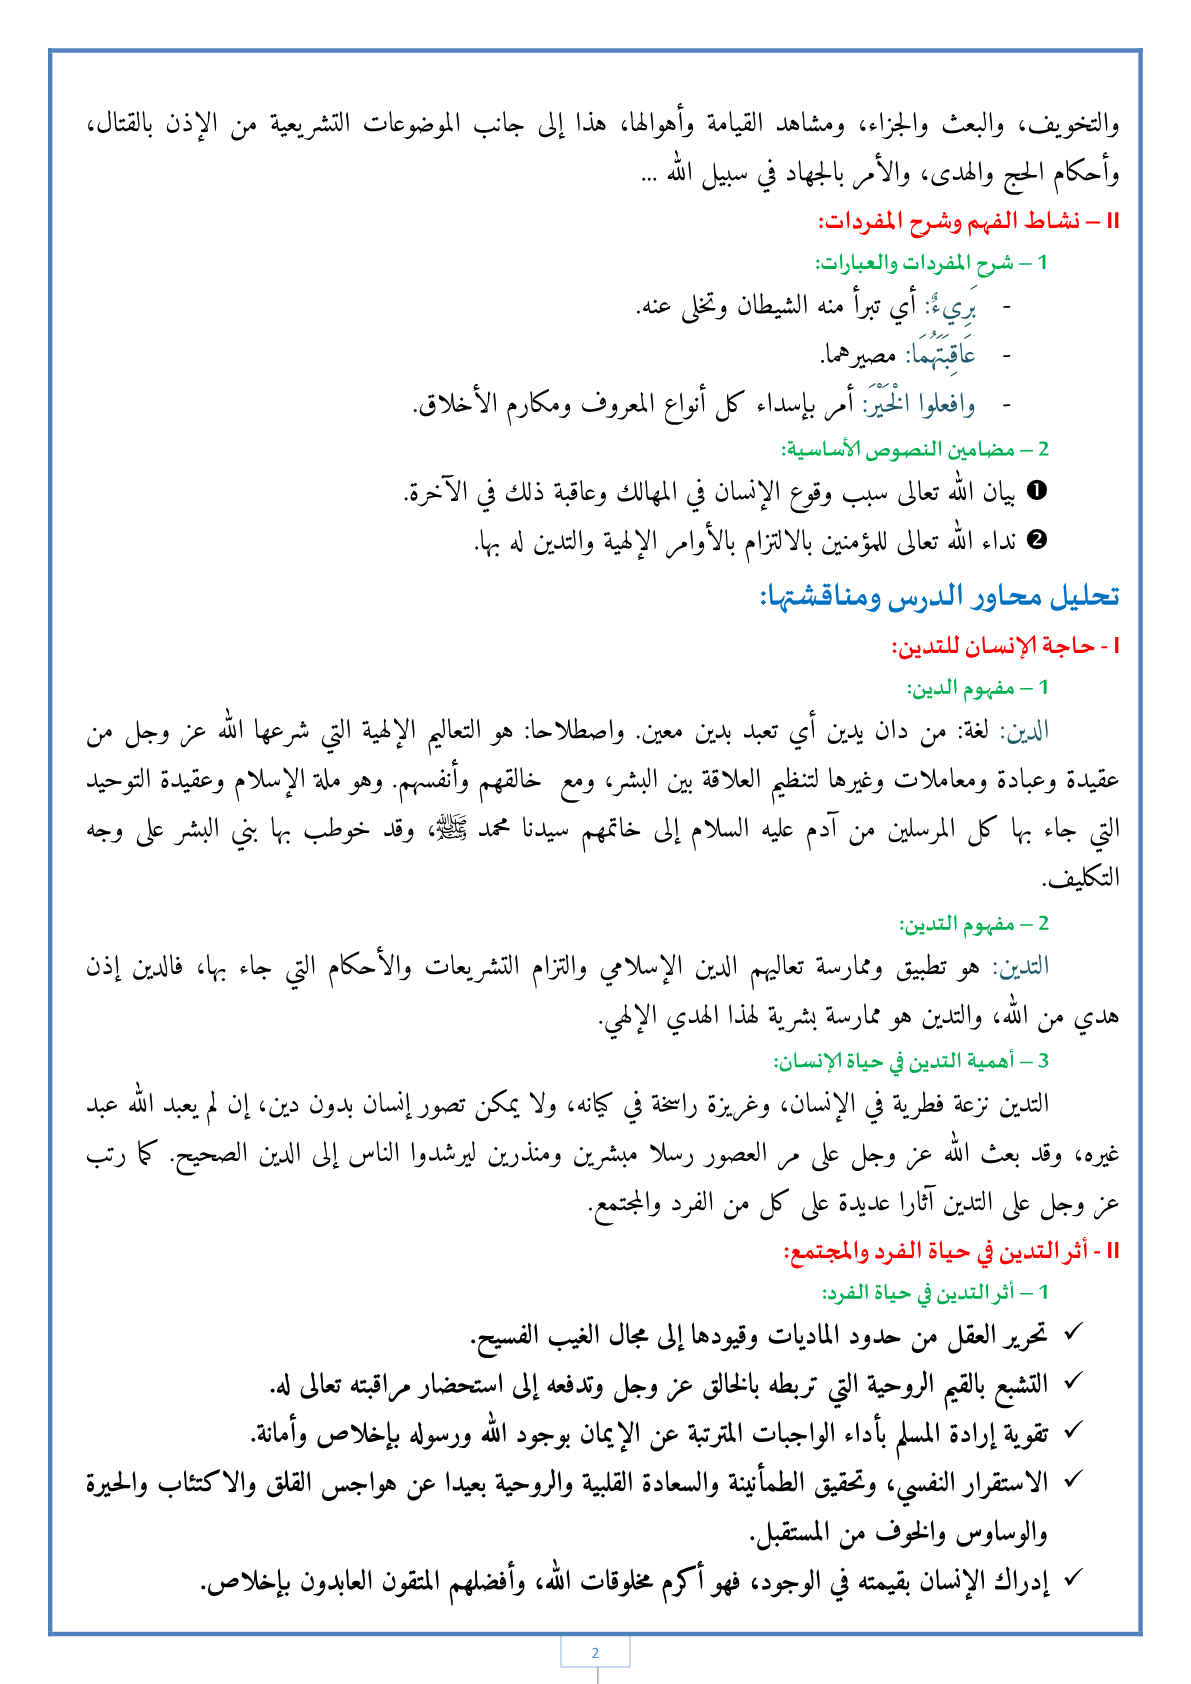 والتخويف، والبعث والجزاء، ومشاهد القيامة وأهوالها، هذا إلى جانب الموضوعات التشريعية من الإذن بالقتال،
وأحكام الحج والهدى، والأمر بالجهاد في سبيل الله ...
II – نشاط الفهم وشرح المفردات:
1 – شرح المفردات والعبارات:
- بَرِيءٌ: أي تبرأ منه الشيطان وتخلى عنه.
- عَاقِبَتَهُمَا: مصيرهما.
- وافعلوا الْخَيْرَ: أمر بإسداء كل أنواع المعروف ومكارم الأخلاق.
2 – مضامين النصوص الأساسية:
❶ بيان الله تعالى سبب وقوع الإنسان في المهالك وعاقبة ذلك في الآخرة.
❷ نداء الله تعالى للمؤمنين بالالتزام بالأوامر الإلهية والتدين له بها.
تحليل محاور الدرس ومناقشتها:
I - حاجة الإنسان للتدين:
1 – مفهوم الدين:
الدين: لغة: من دان يدين أي تعبد بدين معين. واصطلاحا: هو التعاليم الإلهية التي شرعها الله عز وجل من
عقيدة وعبادة ومعاملات وغيرها لتنظيم العلاقة بين البشر، ومع خالقهم وأنفسهم. وهو ملة الإسلام وعقيدة التوحيد
التي جاء بها كل المرسلين من آدم عليه السلام إلى خاتمهم سيدنا محمد ﷺ، وقد خوطب بها بني البشر على وجه
التكليف.
2 – مفهوم التدين:
التدين: هو تطبيق وممارسة تعاليهم الدين الإسلامي والتزام التشريعات والأحكام التي جاء بها، فالدين إذن
هدي من الله، والتدين هو ممارسة بشرية لهذا الهدي الإلهي.
3 – أهمية التدين في حياة الإنسان:
التدين نزعة فطرية في الإنسان، وغريزة راسخة في كيانه، ولا يمكن تصور إنسان بدون دين، إن لم يعبد الله عبد
غيره، وقد بعث الله عز وجل على مر العصور رسلا مبشرين ومنذرين ليرشدوا الناس إلى الدين الصحيح. كما رتب
عز وجل على التدين آثارا عديدة على كل من الفرد والمجتمع.
II - أثر التدين في حياة الفرد والمجتمع:
1 – أثر التدين في حياة الفرد:
✓ تحرير العقل من حدود الماديات وقيودها إلى مجال الغيب الفسيح.
✓ التشبع بالقيم الروحية التي تربطه بالخالق عز وجل وتدفعه إلى استحضار مراقبته تعالى له.
✓ تقوية إرادة المسلم بأداء الواجبات المترتبة عن الإيمان بوجود الله ورسوله بإخلاص وأمانة.
✓ الاستقرار النفسي، وتحقيق الطمأنينة والسعادة القلبية والروحية بعيدا عن هواجس القلق والاكتئاب والحيرة
والوساوس والخوف من المستقبل.
✓ إدراك الإنسان بقيمته في الوجود، فهو أكرم مخلوقات الله، وأفضلهم المتقون العابدون بإخلاص.
2